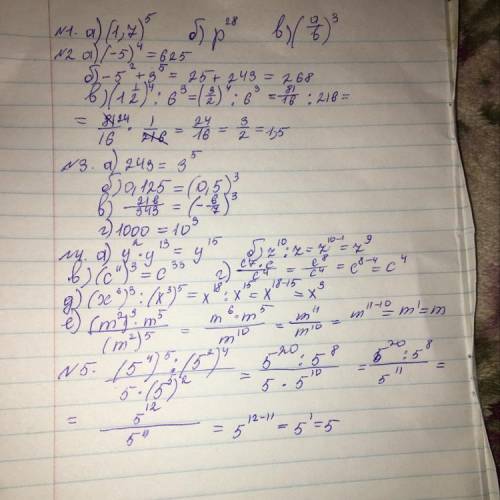 №1. а) (1,7)⁵ б) p²⁸ в) (a/b)³
№2 а) (-5)⁴ = 625
б) -5² + 3⁵ = 25 + 243 = 268
в) (1 1/2)⁴ : 6³ = (3/2)⁴ : 6³ = 81/16 : 216 =
= 81 24/16 · 1/216 = 24/16 = 3/2 = 1,5
№3. а) 243 = 3⁵
б) 0,125 = (0,5)³
в) -216/343 = (-6/7)³
г) 1000 = 10³
№4. а) y² y¹³ = y¹⁵ б) z¹⁰ : z = z¹⁰⁻¹ = z⁹
в) (c¹¹)³ = c³³ г) c⁷·c/c⁴ = c⁸/c⁴ = c⁸⁻⁴ = c⁴
д) (x⁶)³ : (x³)⁵ = x¹⁸ : x¹⁵ = x¹⁸⁻¹⁵ = x³
е) (m²)³ · m⁵/(m²)⁵ = m⁶ · m⁵/m¹⁰ = m¹¹/m¹⁰ = m¹¹⁻¹⁰ = m¹ = m
№5. (5⁴)⁵ : (5²)⁴/5 · (5⁵)² = 5²⁰ : 5⁸/5 · 5¹⁰ = 5²⁰ : 5⁸/5¹¹ =
= 5¹²/5¹¹ = 5¹²⁻¹¹ = 5¹ = 5